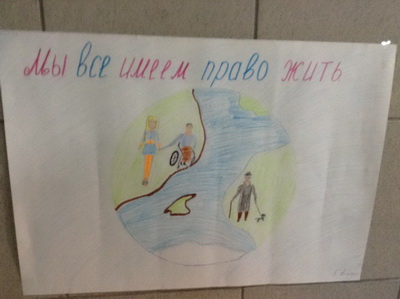 Мы все имеем право жить